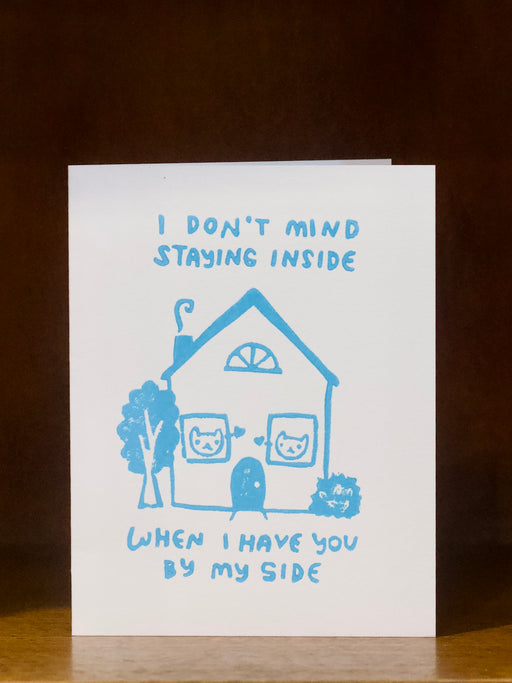 I DON'T MIND
STAYING INSIDE
WHEN I HAVE YOU
BY MY SIDE